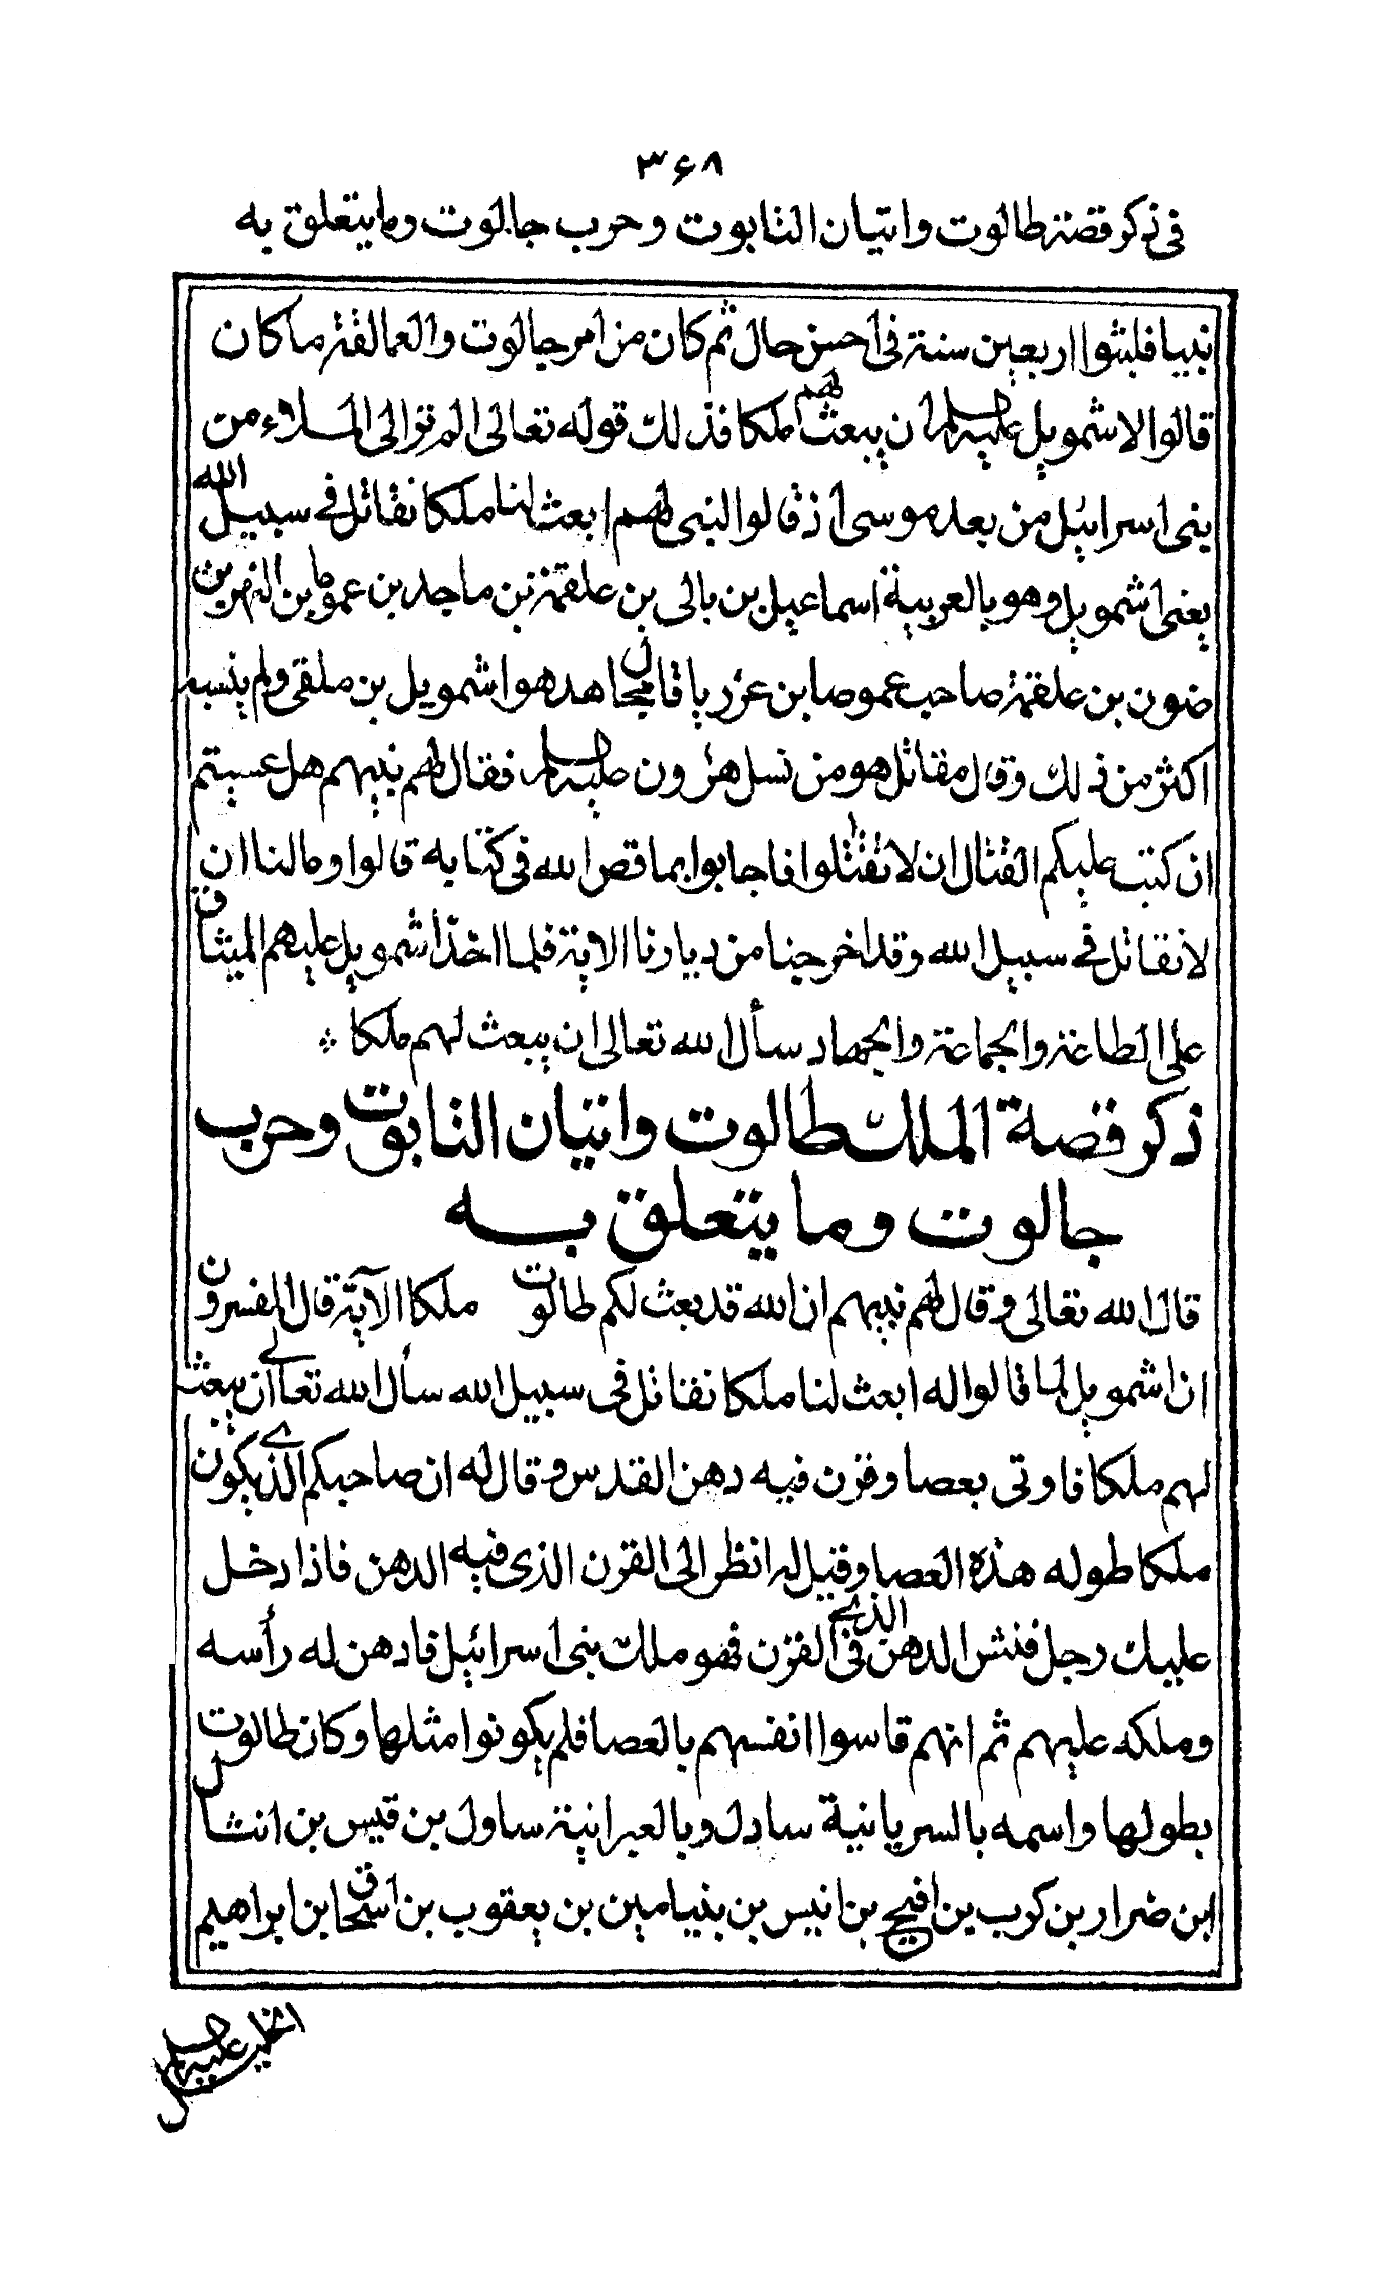 ٣۶٨
فى ذكر قصة طالوت واتيان التابوت وحرب جالوت وما يتعلق به
نبيا فلبثوا اربعين سنة فى احسن حال ثم كان من امر جالوت والعمالقة ما كان
قالوا لاشمويل عليه السلام ان يبعث لهم ملكا فذلك قوله تعالى الم تر الى الملاء من
بنى اسرائيل من بعد موسى اذ قالوا لنبى لهم ابعث لنا ملكا نقاتل فى سبيل الله
يعنى اشمويل وهو بالعربية اسماعيل بن بالى بن علقمة بن ماجد بن عموصا بن النهر بن
ضون بن علقمة صاحب عموصا بن عزريا قال مجاهد هو اشمويل بن ملقى ولم ينسبه
اكثر من ذلك وقال مقاتل هو من نسل هرون عليه السلام فقال لهم نبيهم هل عسيتم
ان كتب عليكم القتال ان لا تقتلوا فاجابوا بما قص الله فى كتابه قالوا وما لنا ان
لا نقاتل فى سبيل الله وقد اخرجنا من ديارنا الاية فلما اخذ اشمويل عليهم الميثاق
على الطاعة والجماعة والجهاد سأل الله تعالى ان يبعث لهم ملكا
ذكر قصة الملك طالوت واتيان التابوت وحرب
جالوت وما يتعلق به
قال الله تعالى وقال لهم نبيهم ان الله قد بعث لكم طالوت ملكا الآية قال المفسرون
ان اشمويل لما قالوا له ابعث لنا ملكا نقاتل فى سبيل الله سأل الله تعالى ان يبعث
لهم ملكا فاوتى بعصا وقرن فيه دهن القدس وقال له ان صاحبكم الذى يكون
ملكا طوله هذه العصا وقيل له انظر الى القرن الذى فيه الدهن فاذا دخل
عليك رجل فنش الدهن الذى فى القرن فهو ملك بنى اسرائيل فادهن له رأسه
وملكه عليهم ثم انهم قاسوا انفسهم بالعصا فلم يكونوا مثلها وكان طالوت
بطولها واسمه بالسريانية سادل وبالعبرانية ساول بن قيس بن انشال
ابن ضرار بن كرب بن افيح بن انيس بن بنيامين بن يعقوب بن اسحاق ابن ابراهيم
الخليل عليه السلام